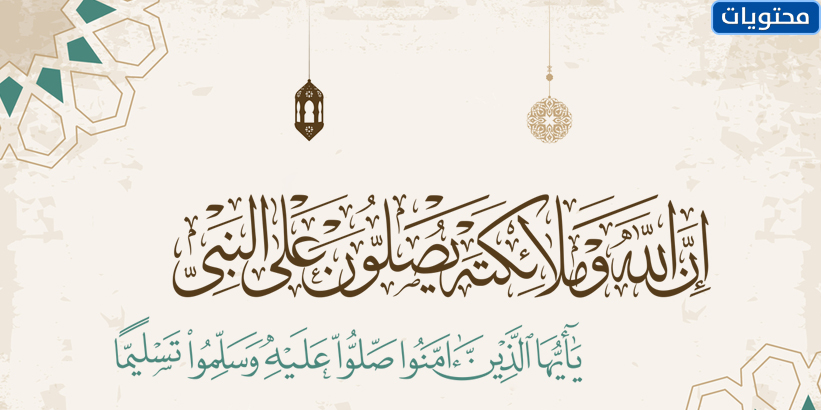 محتويات
إِنَّ اللَّهَ وَمَلَائِكَتَهُ يُصَلُّونَ عَلَى النَّبِيِّ
يَٰٓأَيُّهَا ٱلَّذِينَ ءَامَنُوا۟ صَلُّوا۟ عَلَيْهِ وَسَلِّمُوا۟ تَسْلِيمًا